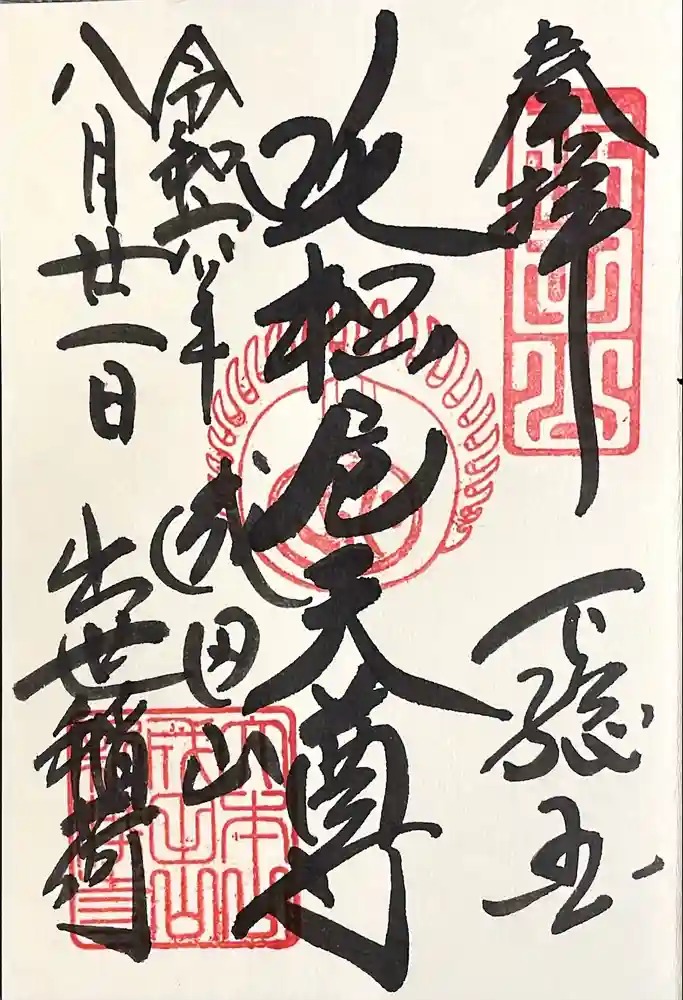 奉拝
下総国
吒枳尼天尊
令和六年
成田山
八月廿一日
出世稲荷